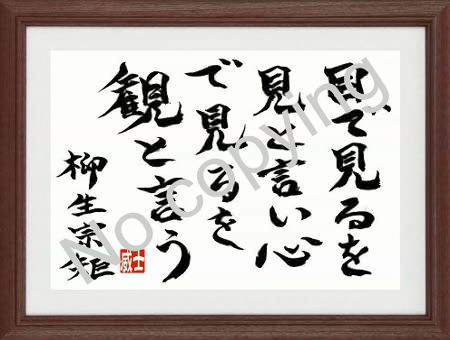 目で見るを
見と言い心
で見るを
観と言う
柳生宗矩
威士
No copying